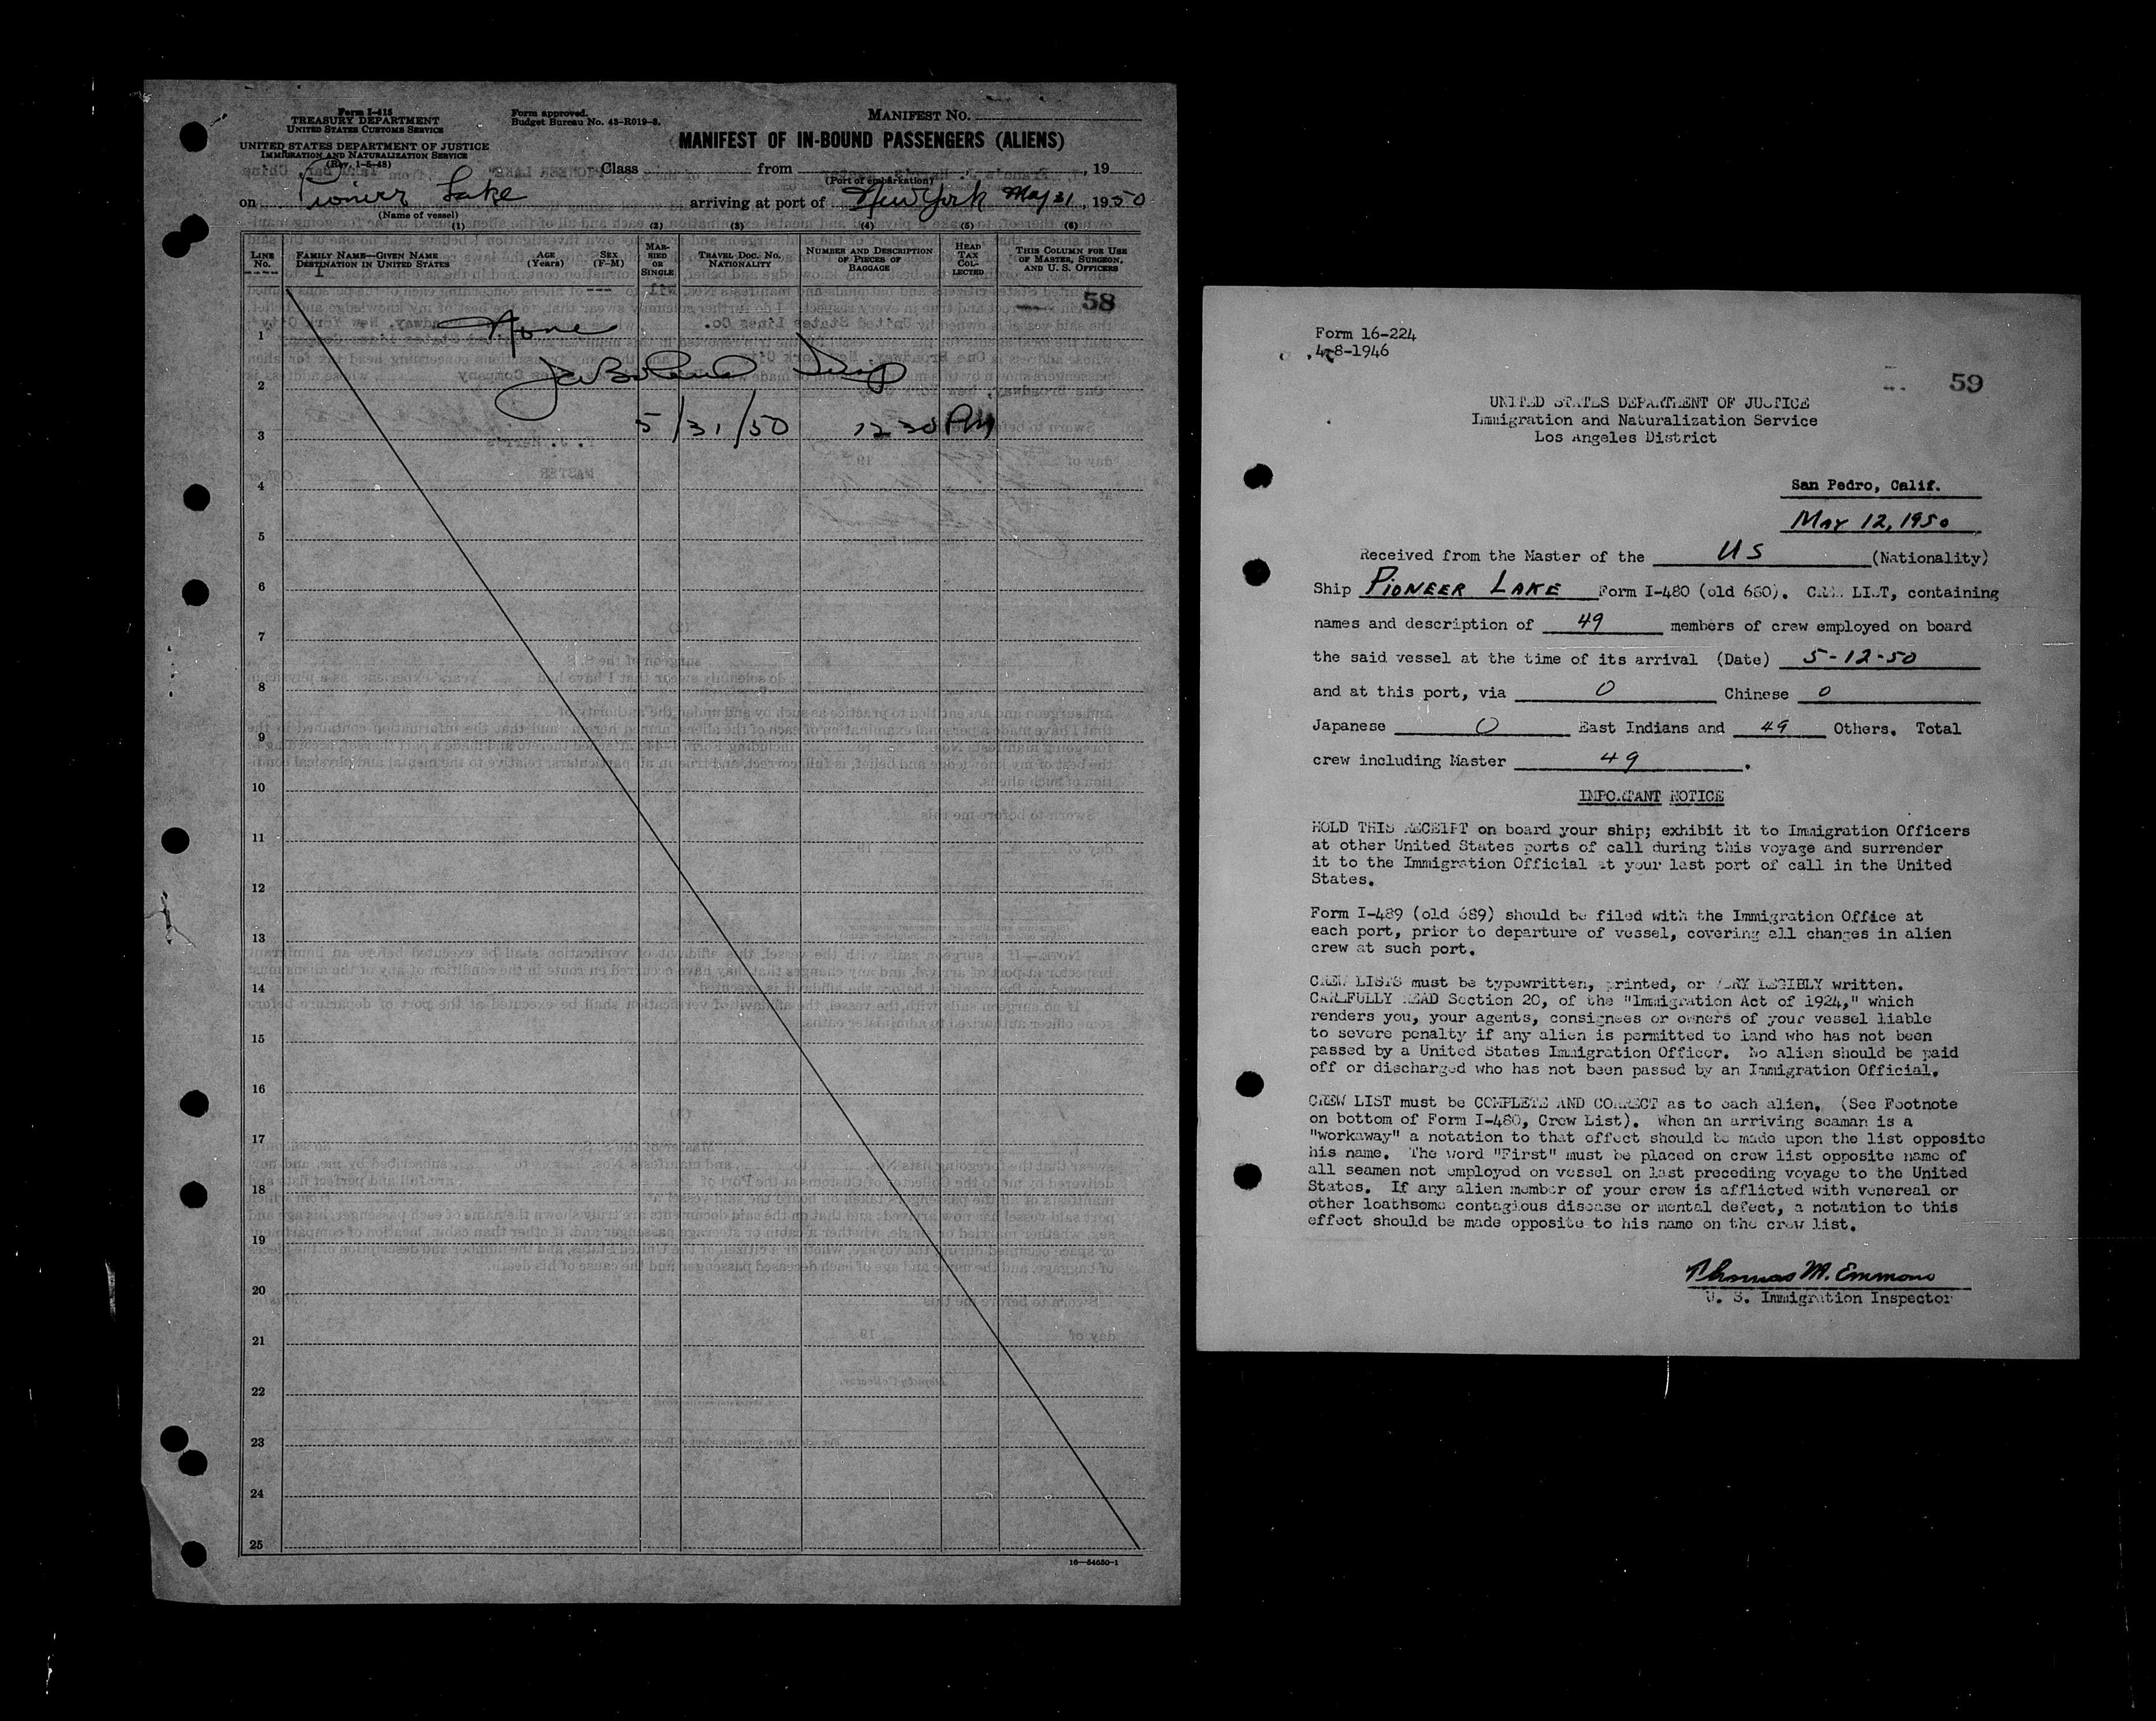 Form I-415
TREASURY DEPARTMENT
UNITED STATES CUSTOMS SERVICE
UNITED STATES DEPARTMENT OF JUSTICE
IMMIGRATION AND NATURALIZATION SERVICE
(Rev. 1-5-48)
Form approved.
Budget Bureau No. 43-R019-3.
MANIFEST NO.
MANIFEST OF IN-BOUND PASSENGERS (ALIENS)
Class from , 19
(Port of embarkation)
on Pioneer Lake arriving at port of New York May 31, 1950
(Name of vessel)
(1) (2) (3) (4) (5) (6)
LINE No. FAMILY NAME—GIVEN NAME DESTINATION IN UNITED STATES AGE (Years) SEX (F-M) MARRIED OR SINGLE TRAVEL DOC. NO. NATIONALITY NUMBER AND DESCRIPTION OF PIECES OF BAGGAGE HEAD TAX COLLECTED THIS COLUMN FOR USE OF MASTER, SURGEON, AND U. S. OFFICERS
58
1 None
2
5/31/50 12 30 PM
3
4
5
6
7
8
9
10
11
12
13
14
15
16
17
18
19
20
21
22
23
24
25
16—54650-1
Form 16-224
4-8-1946
59
UNITED STATES DEPARTMENT OF JUSTICE
Immigration and Naturalization Service
Los Angeles District
San Pedro, Calif.
May 12, 1950
Received from the Master of the US (Nationality)
Ship PIONEER LAKE Form I-480 (old 680). CREW LIST, containing
names and description of 49 members of crew employed on board
the said vessel at the time of its arrival (Date) 5-12-50
and at this port, via 0 Chinese 0
Japanese 0 East Indians and 49 Others. Total
crew including Master 49.
IMPORTANT NOTICE
HOLD THIS RECEIPT on board your ship; exhibit it to Immigration Officers
at other United States ports of call during this voyage and surrender
it to the Immigration Official at your last port of call in the United
States.
Form I-489 (old 689) should be filed with the Immigration Office at
each port, prior to departure of vessel, covering all changes in alien
crew at such port.
CREW LISTS must be typewritten, printed, or VERY LEGIBLY written.
CAREFULLY READ Section 20, of the "Immigration Act of 1924," which
renders you, your agents, consignees or owners of your vessel liable
to severe penalty if any alien is permitted to land who has not been
passed by a United States Immigration Officer. No alien should be paid
off or discharged who has not been passed by an Immigration Official.
CREW LIST must be COMPLETE AND CORRECT as to each alien. (See Footnote
on bottom of Form I-480, Crew List). When an arriving seaman is a
"workaway" a notation to that effect should be made upon the list opposite
his name. The word "First" must be placed on crew list opposite name of
all seamen not employed on vessel on last preceding voyage to the United
States. If any alien member of your crew is afflicted with venereal or
other loathsome contagious disease or mental defect, a notation to this
effect should be made opposite to his name on the crew list.
Thomas M. Emmons
U. S. Immigration Inspector